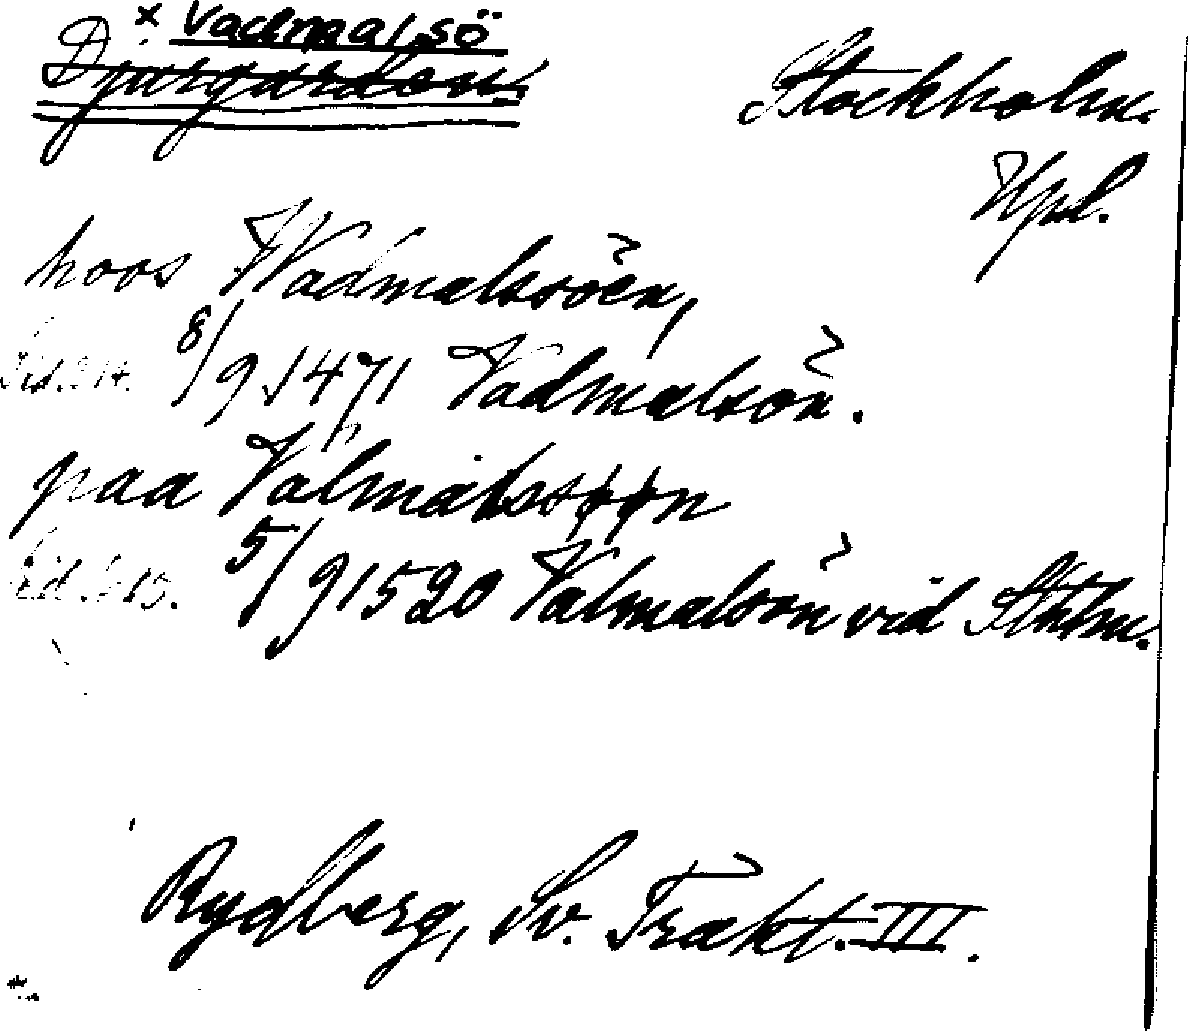 x Vadmalsö
Djurgården.
Stockholm.
Upl.
hoos Wadmalssöen,
Sid. 214. 8/9 1471 Vadmalsön.
paa Valmalssøøn
Sid. 5/9 1520 Valmalsön vid Sthlm.
Rydberg, Sv. Trakt. III.